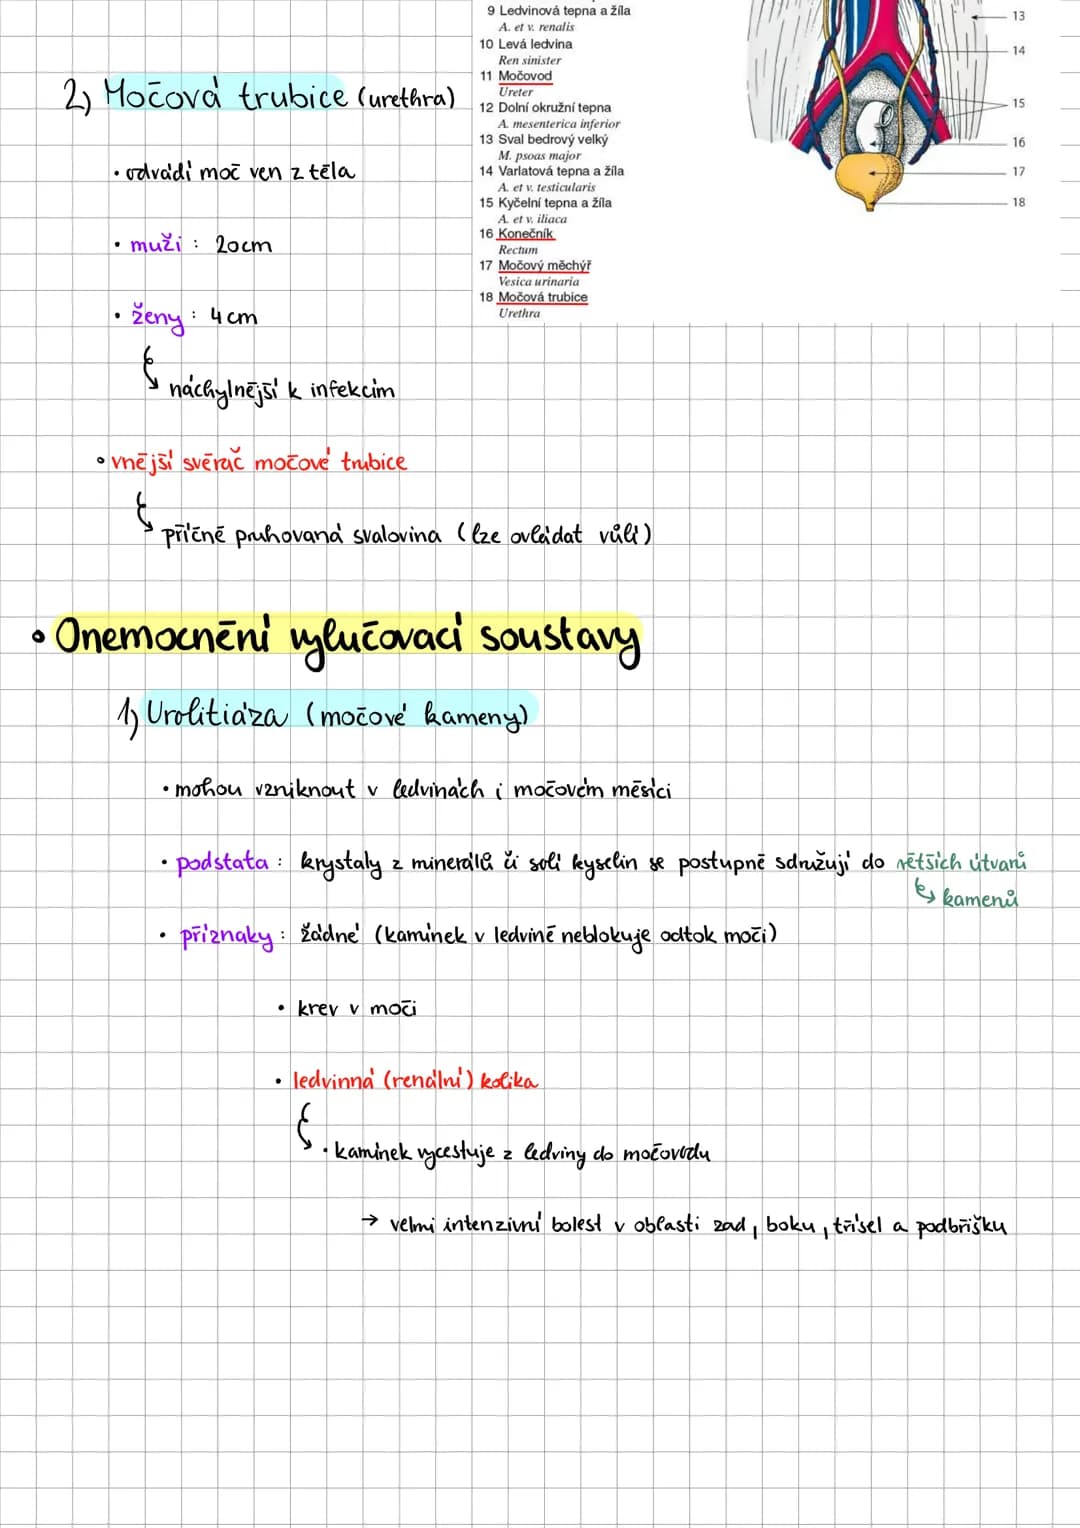 9 Ledvinová tepna a žíla
A. et v. renalis
10 Levá ledvina
Ren sinister
11 Močovod
Ureter
12 Dolní okružní tepna
A. mesenterica inferior
13 Sval bedrový velký
M. psoas major
14 Varlatová tepna a žíla
A. et v. testicularis
15 Kyčelní tepna a žíla
A. et v. iliaca
16 Konečník
Rectum
17 Močový měchýř
Vesica urinaria
18 Močová trubice
Urethra
13
14
15
16
17
18
2) Močová trubice (urethra)
• odvádí moč ven z těla
• muži : 20cm
• ženy : 4cm
náchylnější k infekcím
• vnější svěrač močové trubice
příčně pruhovaná svalovina (lze ovládat vůlí)
• Onemocnění vylučovací soustavy
1) Urolitiáza (močové kameny)
• mohou vzniknout v ledvinách i močovém měsíci
• podstata : krystaly z minerálů či solí kyselin se postupně sdružují do větších útvarů
kamenů
• příznaky : žádné (kamínek v ledvině neblokuje odtok moči)
• krev v moči
• ledvinná (renální) kolika
• kamínek vycestuje z ledviny do močovodu
→ velmi intenzivní bolest v oblasti zad, boku, třísel a podbřišku